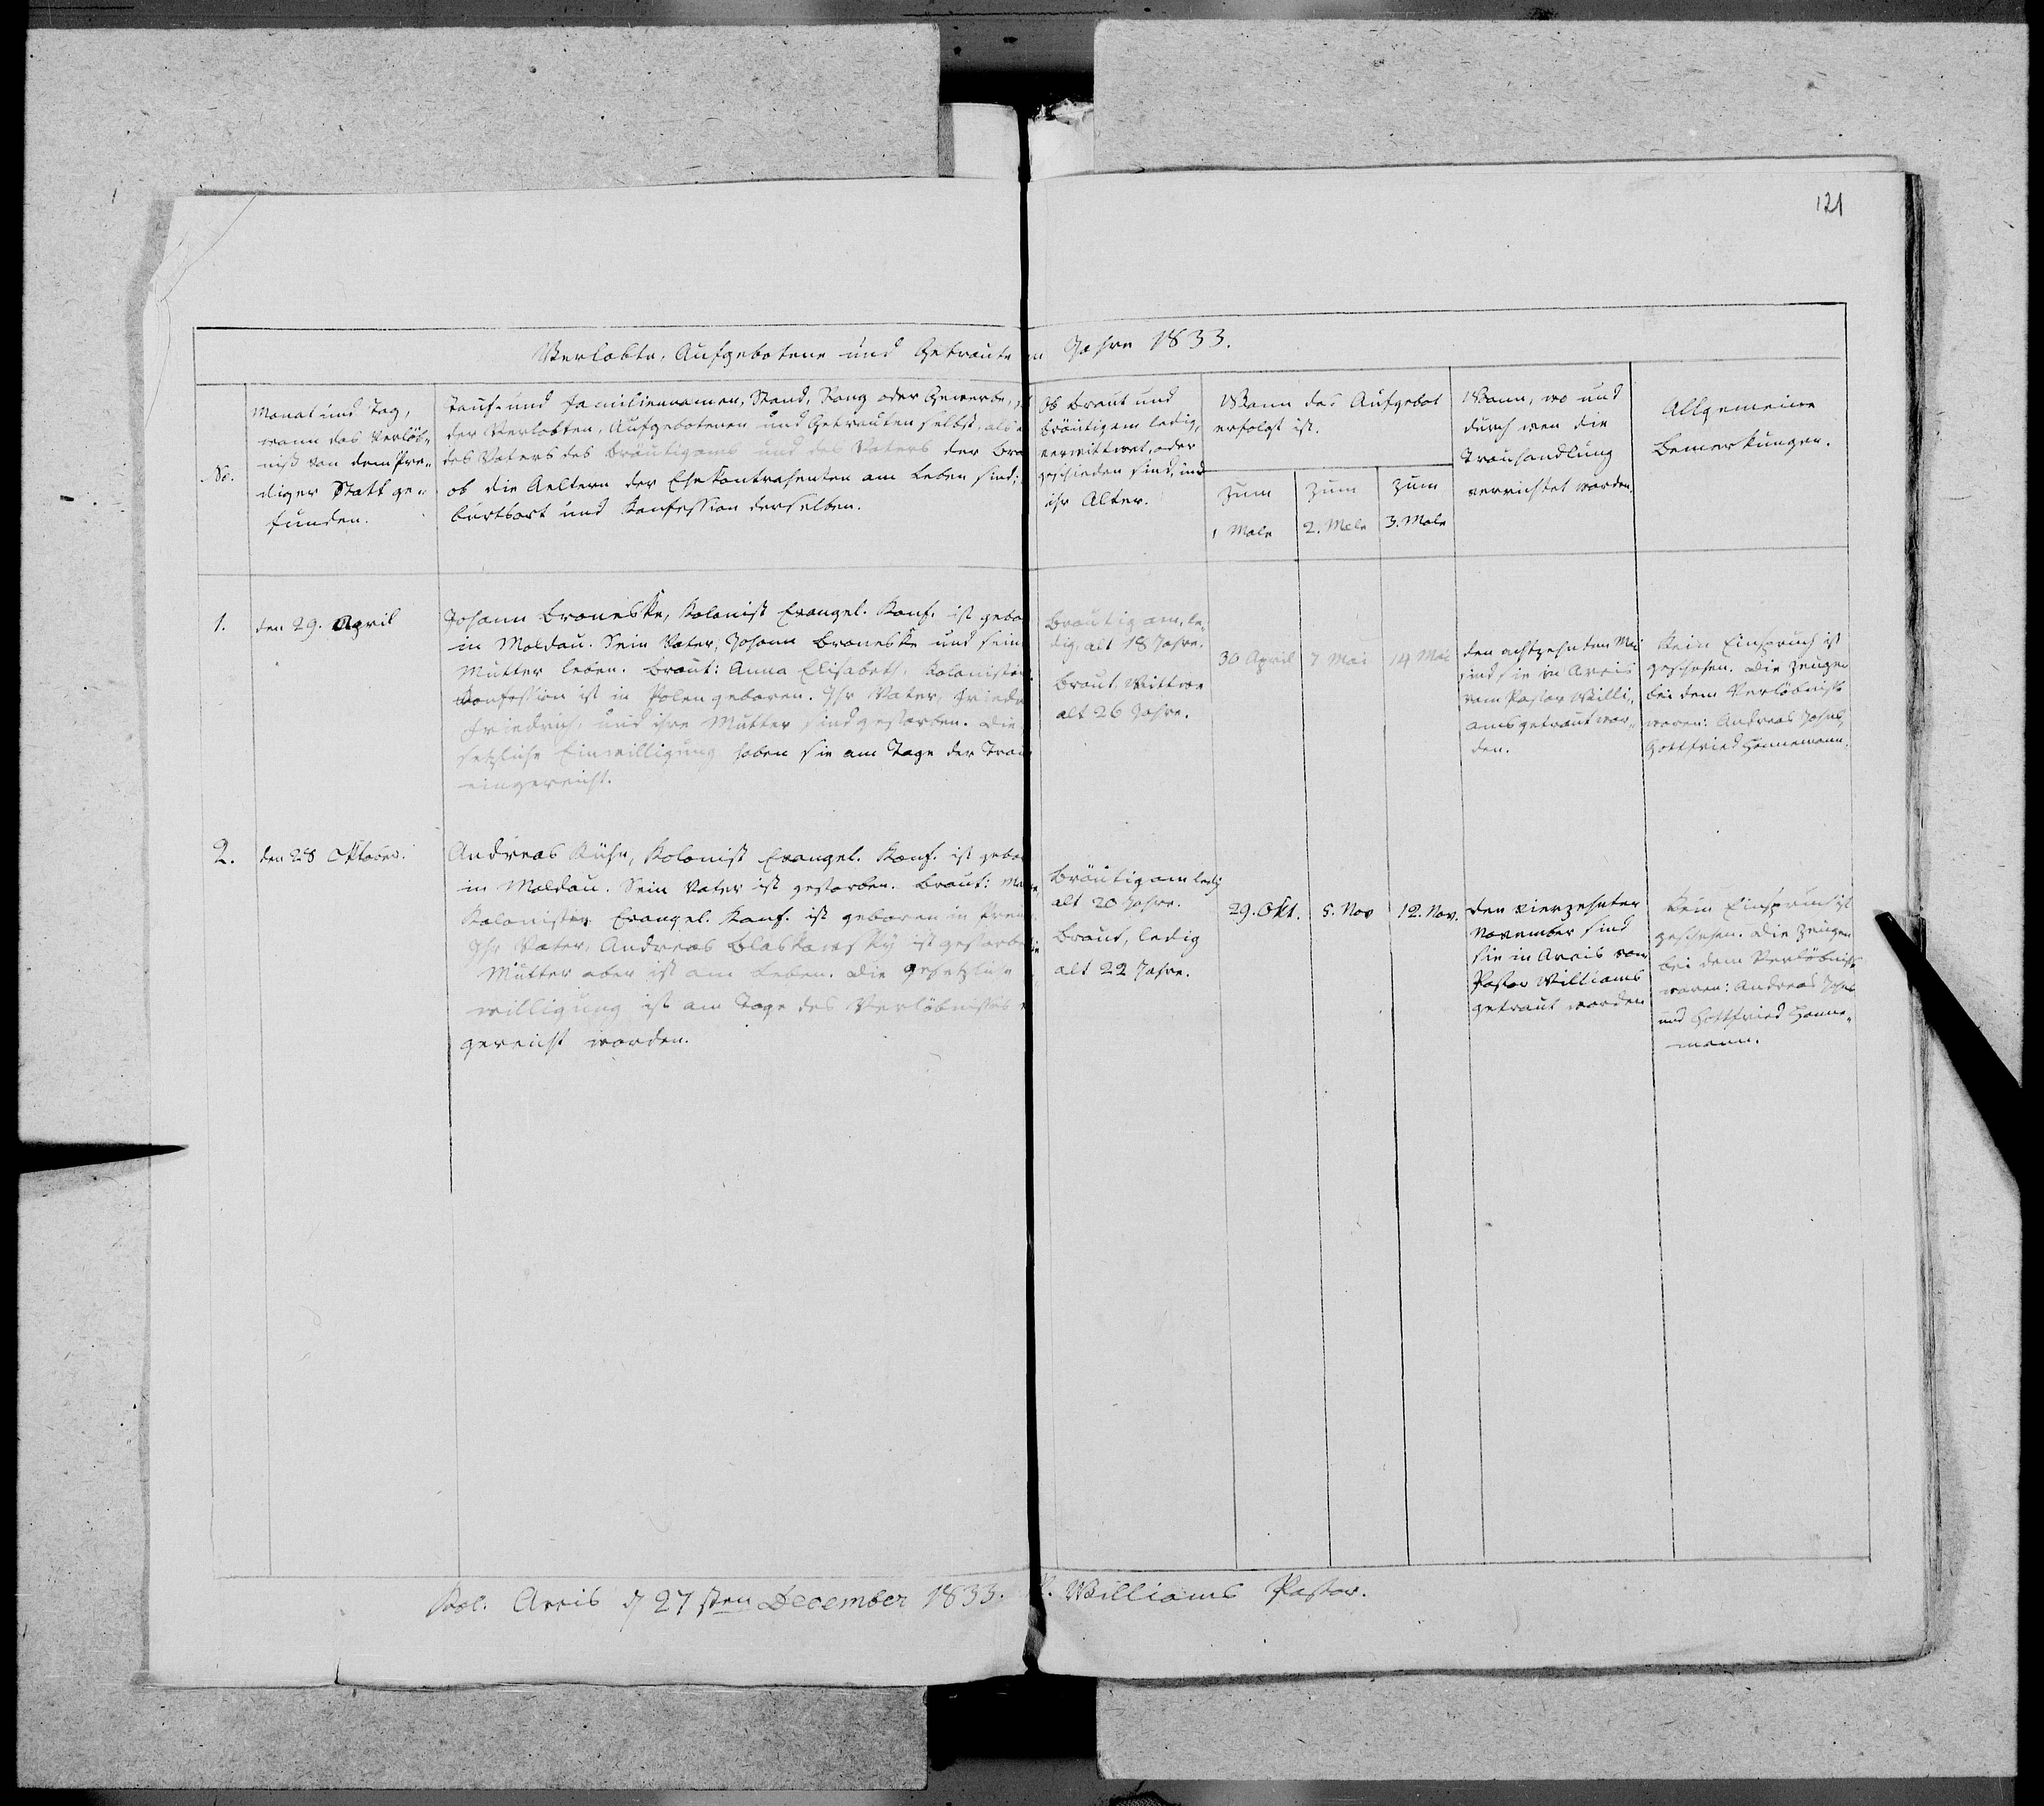 121
Verlobte, Aufgebotene und Getraute Jahre 1833.
No.
Monat und Tag,
wann das Verlöb-
niß von dem Pre-
diger Statt ge-
funden.
Tauf- und Familiennamen, Stand, Rang oder Gewerbe,
der Verlobten, Aufgebotenen und Getrauten selbst, als
des Vaters des Bräutigams und des Vaters der Bra
ob die Aeltern der Ehekontrahenten am Leben sind;
burtsort und Konfession derselben.
Ob Braut und
Bräutigam ledig,
verwittwet, oder
geschieden sind, und
ihr Alter.
Wann das Aufgebot
erfolgt ist.
zum
1 Male
zum
2. Male
zum
3. Male
Wann, wo und
durch wen die
Trauhandlung
verrichtet worden.
Allgemeine
Bemerkungen.
1.
den 29. April
Johann Broneske, Kolonist Evangel. Konf. ist gebo
in Moldau. Sein Vater, Johann Broneske und sein
Mutter leben. Braut: Anna Elisabeth, Kolonistin
Konfession ist in Polen geboren. Ihr Vater, Friedr
Friedrich, und ihre Mutter sind gestorben. Die
setzliche Einwilligung haben sie am Tage der Trau
eingereicht.
Bräutigam, le-
dig, alt 18 Jahre.
Braut, Wittwe
alt 26 Jahre.
30 April
7 Mai
14 Mai
den achtzehnten Mai
sind sie in Arcis
vom Pastor Willi-
ams getraut wor-
den.
Kein Einspruch ist
geschehen. Die Zeugen
bei dem Verlöbniß
waren: Andreas Johns,
Gottfried Hannemann.
2.
den 28 Oktober.
Andreas Kühn, Kolonist Evangel. Konf. ist gebor
in Moldau. Sein Vater ist gestorben. Braut:
Kolonistin Evangel. Konf. ist geboren in Preu
Ihr Vater, Andreas Blaskowsky ist gestorbe
Mutter aber ist am Leben. Die gesetzliche
willigung ist am Tage des Verlöbnisses
gereicht worden.
Bräutigam ledig
alt 20 Jahre.
Braut, ledig
alt 22 Jahre.
29. Okt.
5. Nov
12. Nov.
den vierzehnten
November sind
sie in Arcis vom
Pastor Williams
getraut worden
Kein Einspruch ist
geschehen. Die Zeugen
bei dem Verlöbniß
waren: Andreas Johns
und Gottfried Hanne-
mann.
Kol. Arcis d 27sten December 1833. Williams Pastor.